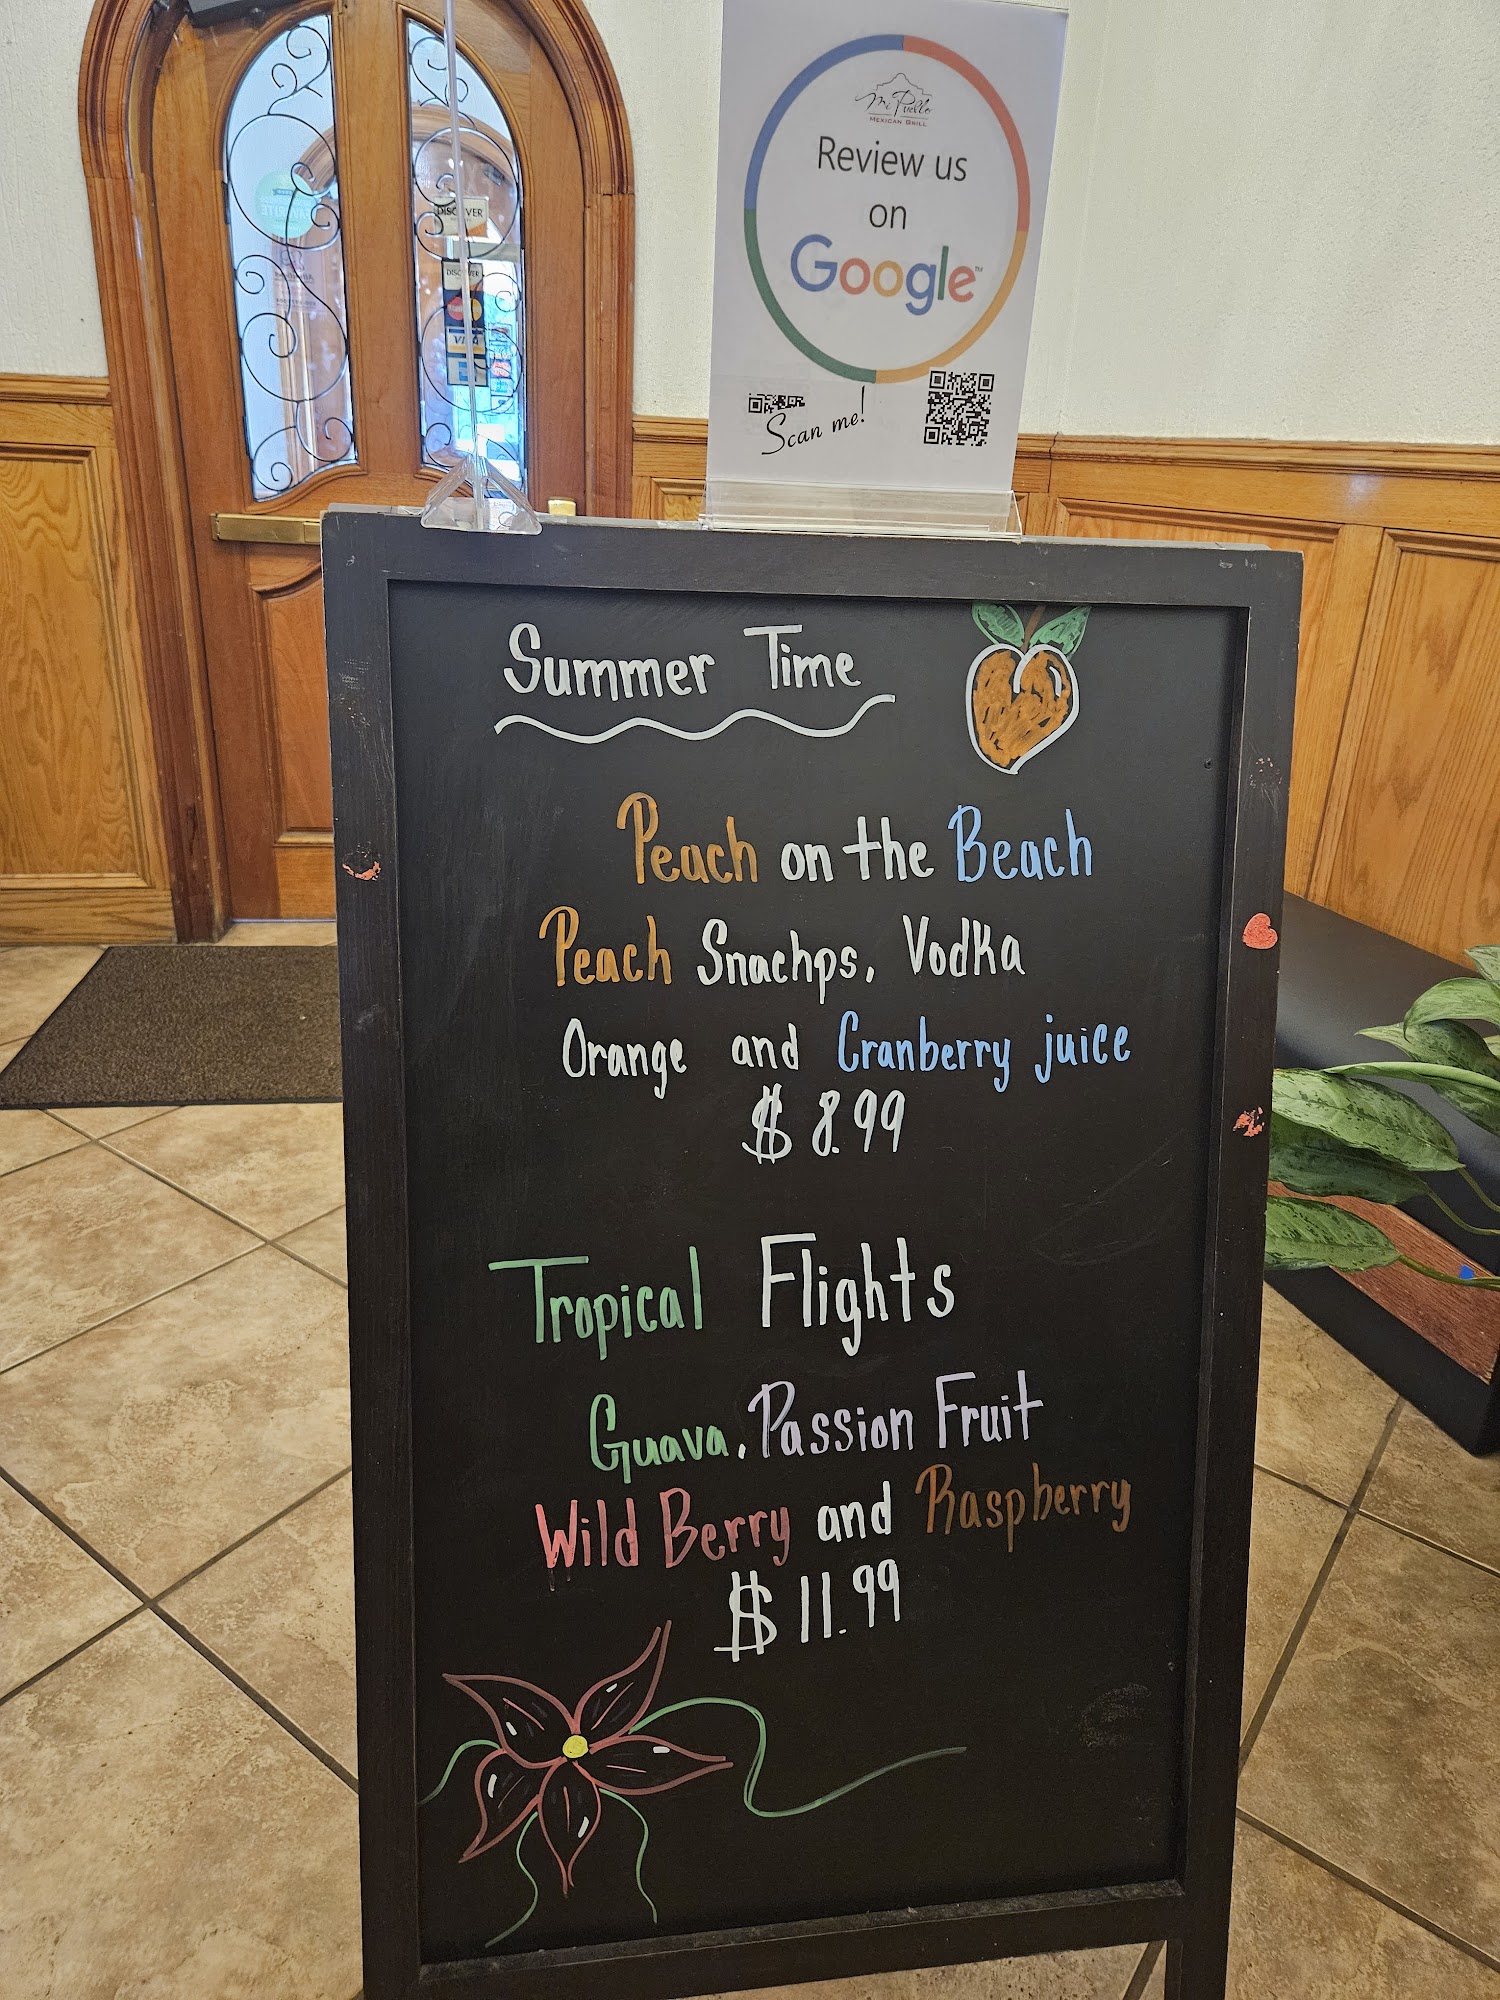 Mi Pueblo
MEXICAN GRILL
Review us
on
Google™
Scan me!
DISCOVER
DISCOVER
VISA
Summer Time
Peach on the Beach
Peach Snachps, Vodka
Orange and Cranberry juice
$ 8.99
Tropical Flights
Guava, Passion Fruit
Wild Berry and Raspberry
$ 11.99